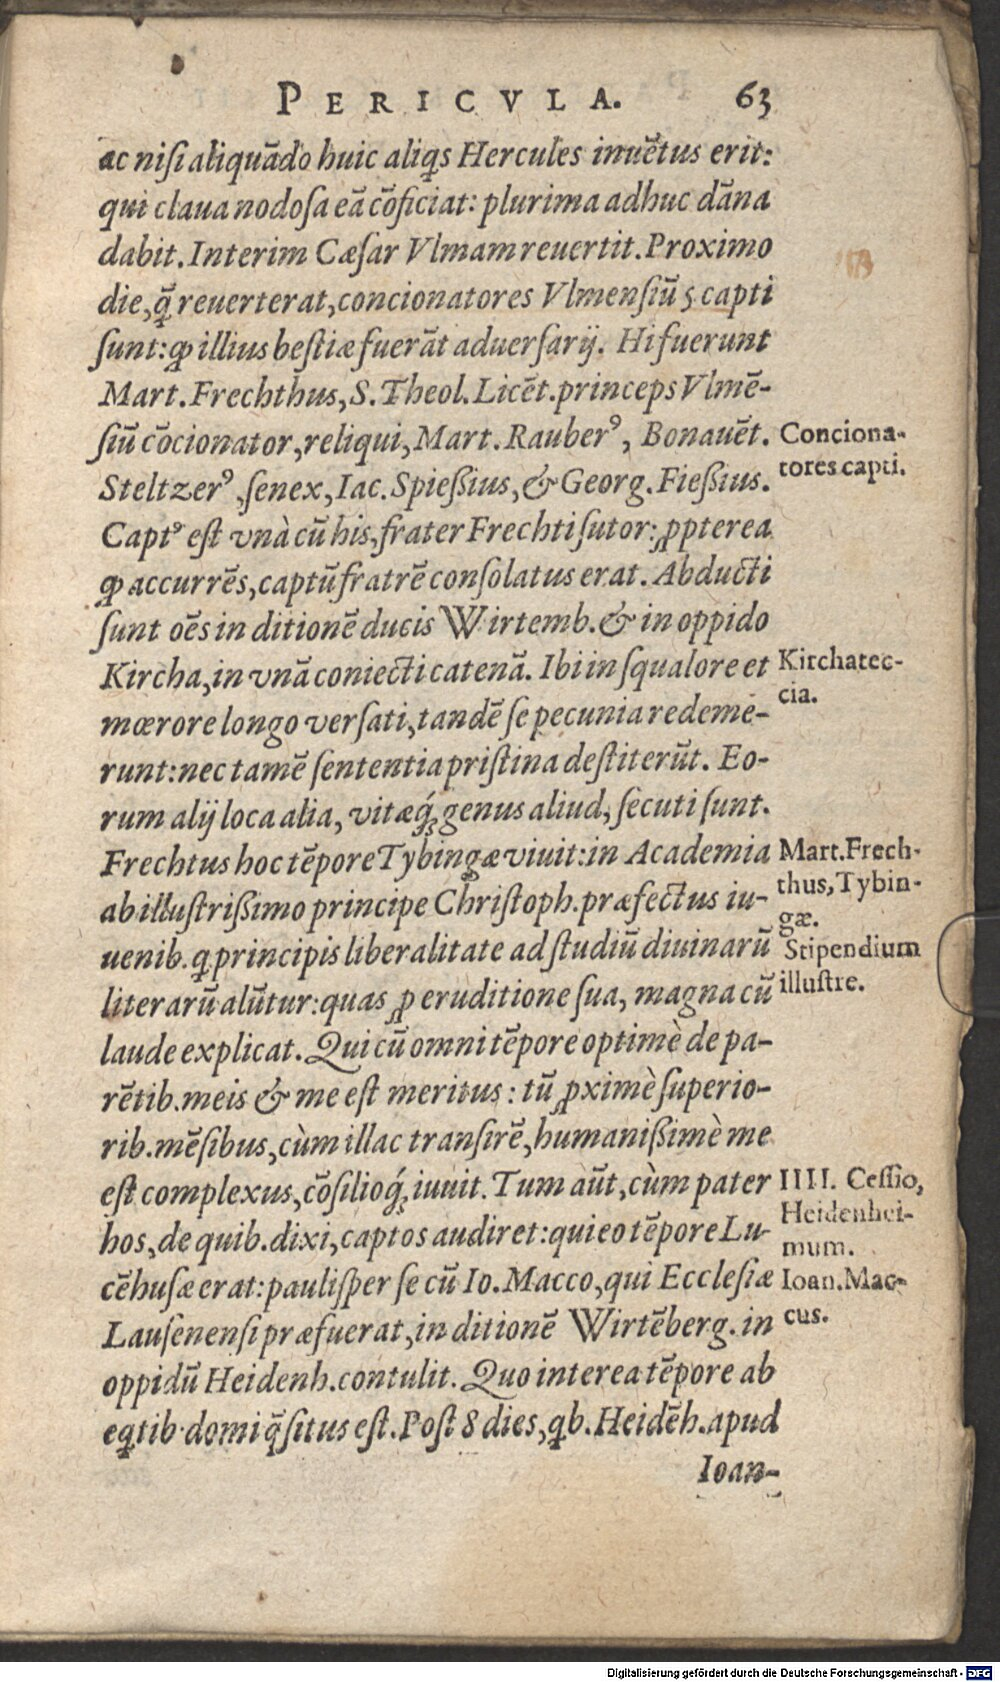 PERICVLA. 63
ac niſi aliquãdo huic aliꝗs Hercules inuẽtus erit:
qui claua nodoſa eã cõficiat: plurima adhuc dãna
dabit. Interim Cæſar Vlmam reuertit. Proximo
die, ꝗ̃ reuerterat, concionatores Vlmenſiũ 5 capti
ſunt: ꝙ illius beſtiæ fuerãt aduerſarij. Hi fuerunt
Mart. Frechthus, S. Theol. Licẽt. princeps Vlmẽ-
ſiũ cõcionator, reliqui, Mart. Rauberꝰ, Bonauẽt.
Steltzerꝰ, ſenex, Iac. Spieſsius, & Georg. Fieſsius.
Captꝰ eſt vnà cũ his, frater Frechti ſutor: ꝓpterea
ꝙ accurrẽs, captũ fratrẽ conſolatus erat. Abducti
ſunt oẽs in ditionẽ ducis Wirtemb. & in oppido
Kircha, in vnã coniecti catenã. Ibi in ſqualore et
mœrore longo verſati, tandẽ ſe pecunia redeme-
runt: nec tamẽ ſententia priſtina deſtiterũt. Eo-
rum alij loca alia, vitæq́; genus aliud, ſecuti ſunt.
Frechtus hoc tẽpore Tybingæ viuit: in Academia
ab illuſtriſsimo principe Chriſtoph. præfectus iu-
uenib. ꝗ principis liberalitate ad ſtudiũ diuinarũ
literarũ alũtur: quas ꝓ eruditione ſua, magna cũ
laude explicat. Qui cũ omni tẽpore optimè de pa-
rẽtib. meis & me eſt meritus: tũ ꝓximè ſuperio-
rib. mẽſibus, cùm illac tranſirẽ, humaniſsimè me
eſt complexus, cõſilioq́; iuuit. Tum aũt, cùm pater
hos, de quib. dixi, captos audiret: qui eo tẽpore Lu-
cẽhuſæ erat: pauliſper ſe cũ Io. Macco, qui Eccleſiæ
Lauſenenſi præfuerat, in ditionẽ Wirtẽberg. in
oppidũ Heidenh. contulit. Quo interea tẽpore ab
eꝗtib. domi q̃ſitus eſt. Poſt 8 dies, ꝗb. Heidẽh. apud
Ioan-
Conciona-
tores capti.
Kirchatec-
cia.
Mart. Frech-
thus, Tybin-
gæ.
Stipendium
illuſtre.
IIII. Ceſſio,
Heidenhei-
mum.
Ioan. Mac-
cus.
Digitalisierung gefördert durch die Deutsche Forschungsgemeinschaft - DFG